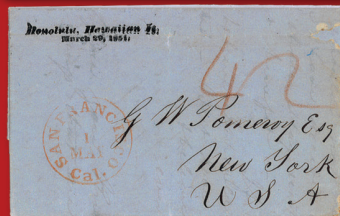 Honolulu, Hawaiian Is.
March 29, 1851.
42
SAN FRANCISCO
1
MAY
Cal.
G W Pomeroy Esq
New York
U S A